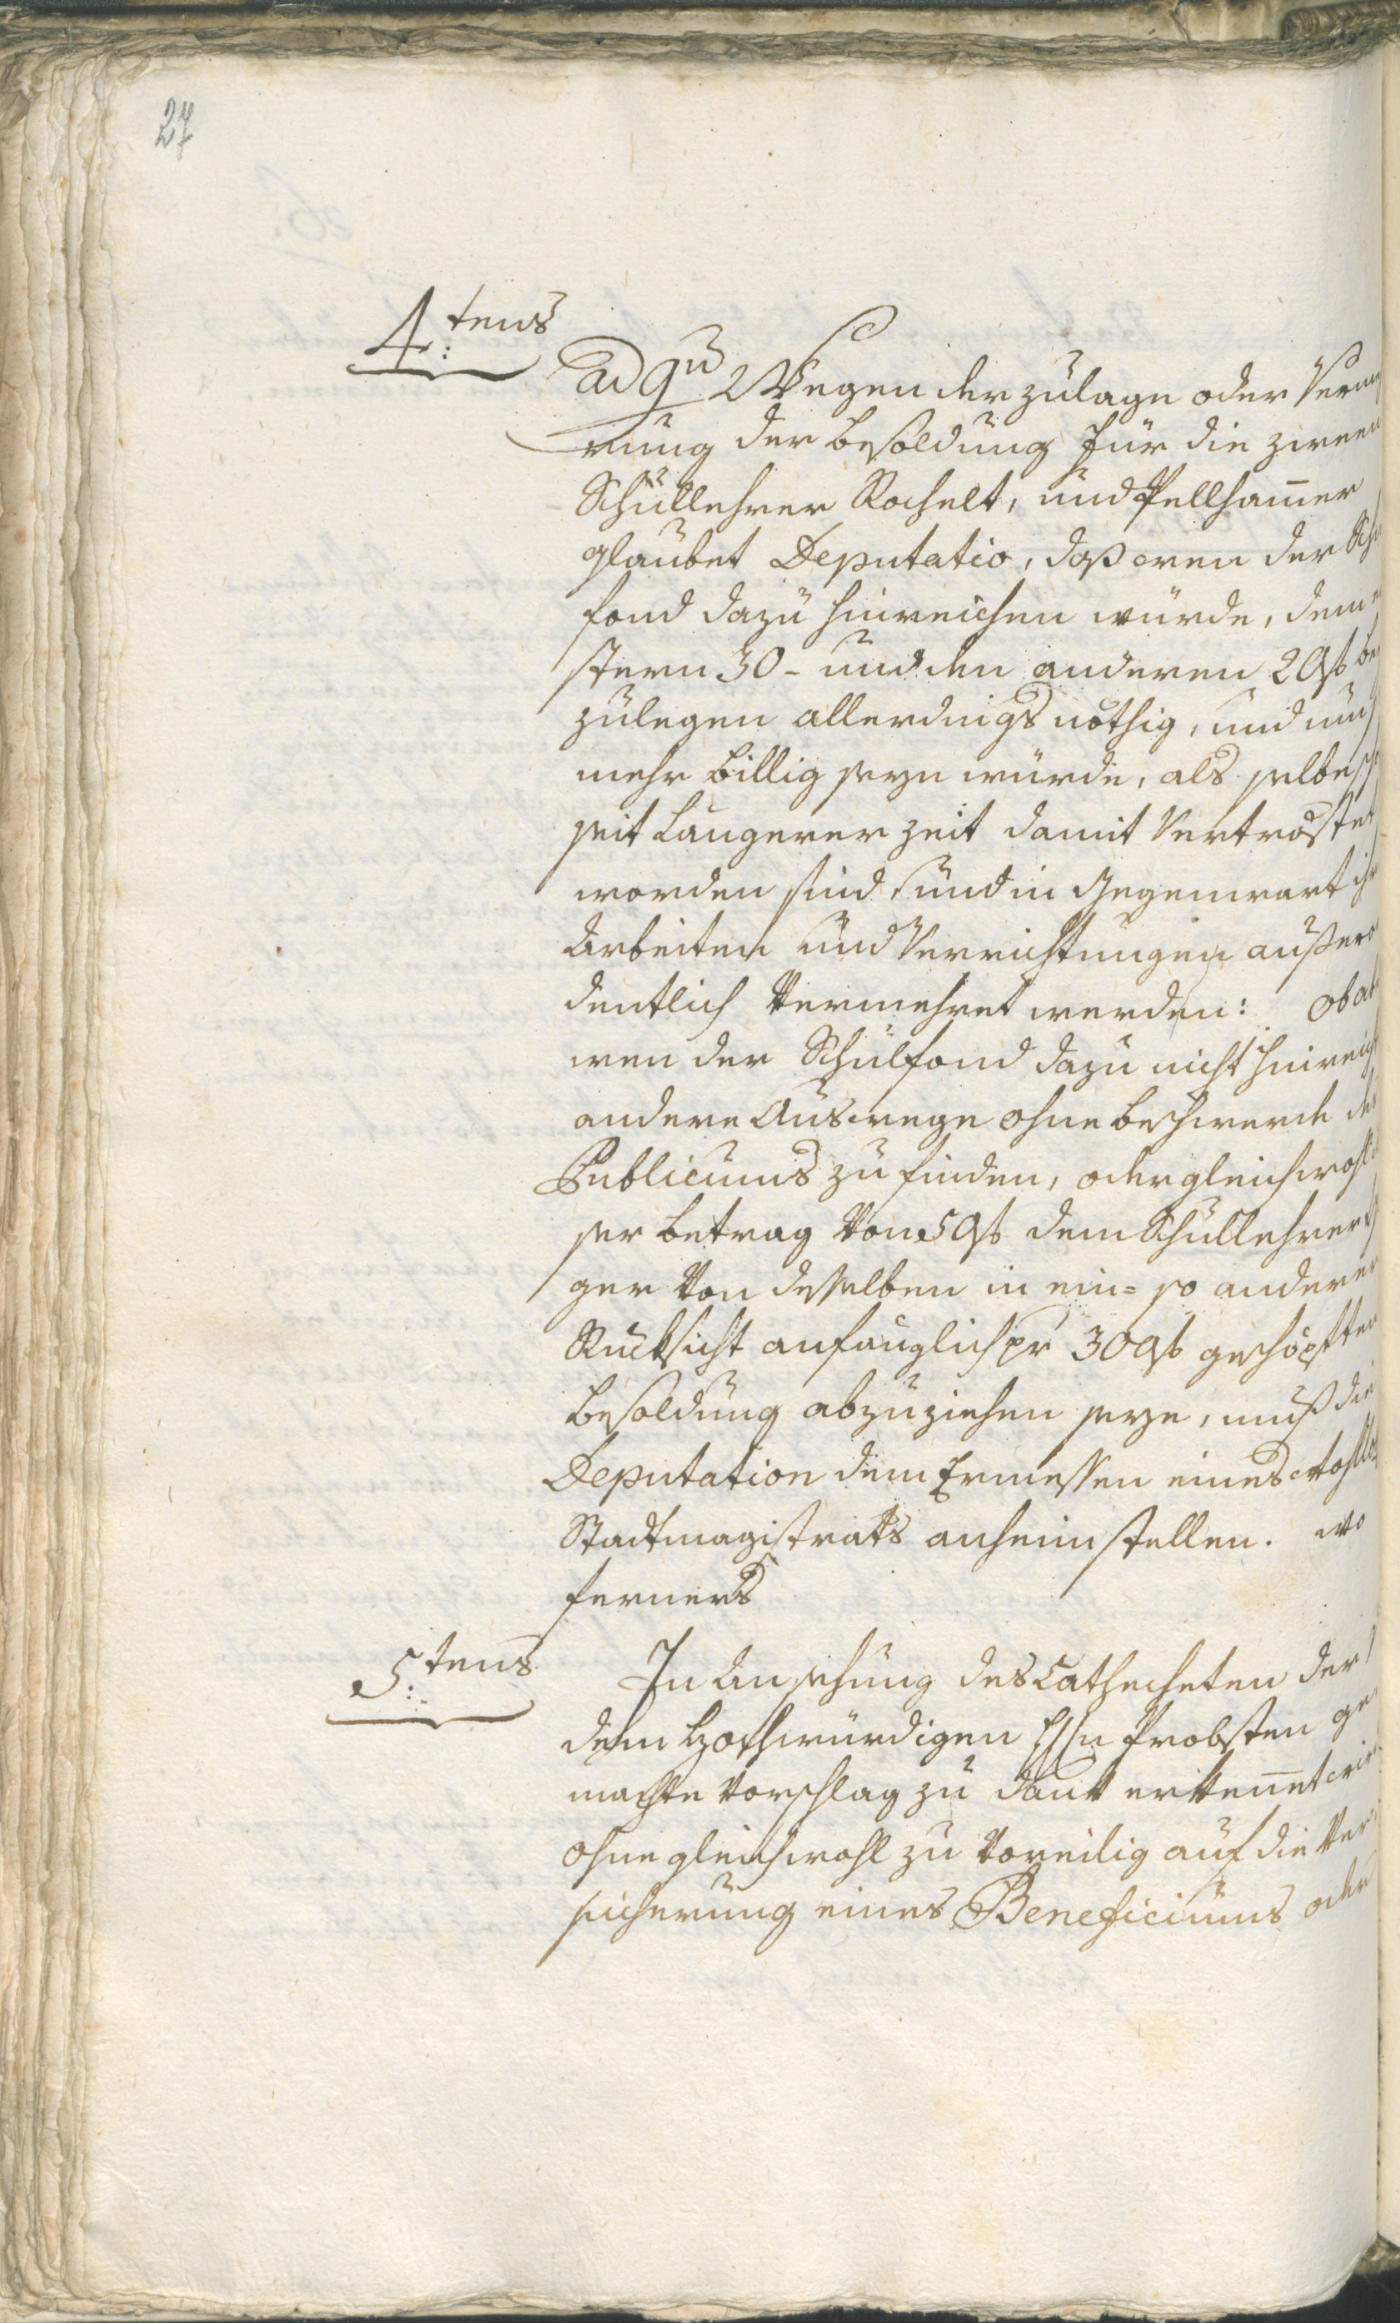 27
4:tens
ad 9um Wegen der zulage oder Verme
rung der besoldung für die zween
Schullehrer Rochelt, und Pellhamer
glaubet Deputatio, daß wen der Schu
fond dazu hinreichen würde, dem
stern 30- und den anderen 20f be
zulegen allerdings nöthig, und um
mehr billig seyn würde, als selbe
seit Langerer zeit damit Vertröstet
worden sind, und in Gegenwart ih
Arbeiten und Verrichtungen außeror
dentlich Vermehret werden: ob ab
wen der Schulfond dazu nicht hinreich
andere Auswege ohne beschwerde de
Publicums zu finden, oder gleichwohl
ser betrag Von 50f dem Schullehrer
ger Von desselben in ein= so anderer
Rucksicht anfänglich pr 300f geschöpften
besoldung abzuziehen seye, muß die
Deputation dem Ermessen eines Wohll
Stadtmagistrats anheimstellen. wo
ferners
5:tens
In Ansehung des Cathecheten der
dem Hochwürdigen Hrn Probsten ge
machte Vorschlag zu dank erkennet
ohne gleichwohl zu Voreilig auf die Ver
sicherung eines Beneficiums oder